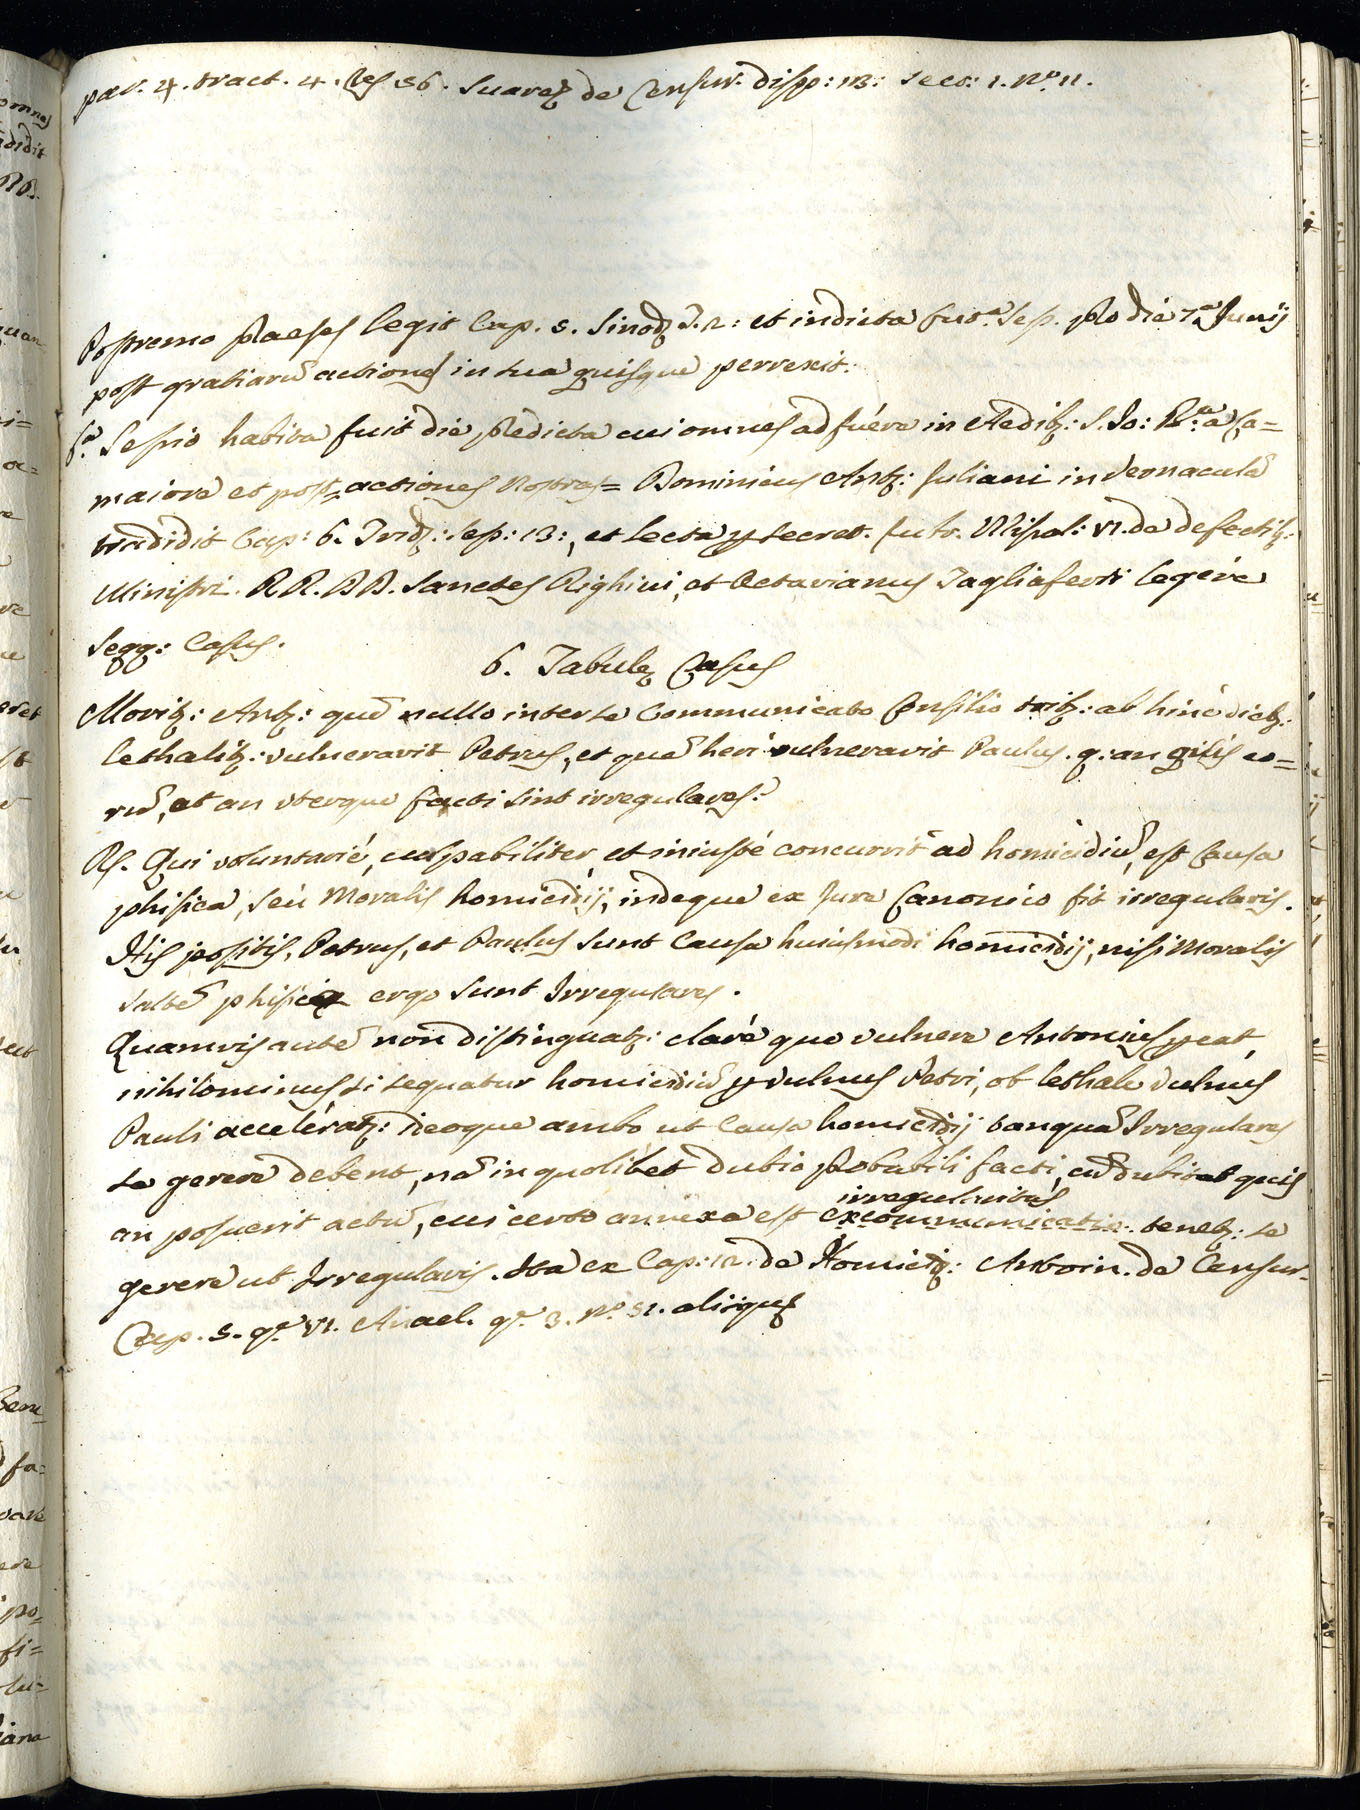 par. 4. tract. 4. Res 56. Suarez de Censur. disp: 13: sect: 1. N.º 11.
Postremo Praeses legit Cap. 5. Sinodj S. 2: et indicta fut.ª Sess. pro die 7.ª Junij
post gratiarũ actiones in sua quisque perrexit.
6.ª Sessio habita fuit die predicta cui omnes adfuére in Aedib: S. Jo: B.ª a Ca=
maiore et post actiones nostras= Dominicus Ant: Juliani in vernaculã
tradidit Cap: 6. Trid: sess: 13:, et lecta p secret. Missal: VI. de defectib:
Ministri. RR. DD. Sanctes Righini, et Octavianus Tagliaferri legére
Seqq: Casus.
6. Tabulę Casus
Morit: Ant: quẽ nullo inter se Communicato Consilio trib: ab hinc dieb:
lethalit: vulneravit Petrus, et quẽ heri vulneravit Paulus. q: an qilis eo=
rũ, et an uterque facti sint irregulares?
Rs. Qui voluntarié, culpabiliter, et iniusté concurrit ad homicidiũ, est Causa
phisica, seù Moralis homicidij, indeque ex Jure Canonico fit irregularis.
His positis, Petrus, et Paulus sunt Causa huiusmodi homicidij, nisi Moralis
saltẽ phisica ergo sunt Irregulares.
Quamvis autẽ non distinguat: claré quo vulnere Antonius peat,
nihilominus si sequatur homicidiũ p vulnus Petri, ob lethale vulnus
Pauli accelérat: ideoque ambo ut Causa homicidij tanquã Irregulares
se gerere debent, nã in quolibet dubio probabili facti, cũ dubitat quis
an posuerit actũ, cui certo annexa est excommunicatio irregularitas tenet: se
gerere ut Irregularis. Ita ex Cap: 12. de Homicid: Antoin. de Censur.
Cap. 5. q.ª VI. Anacl. q.ª 3. N.º 51. aliique